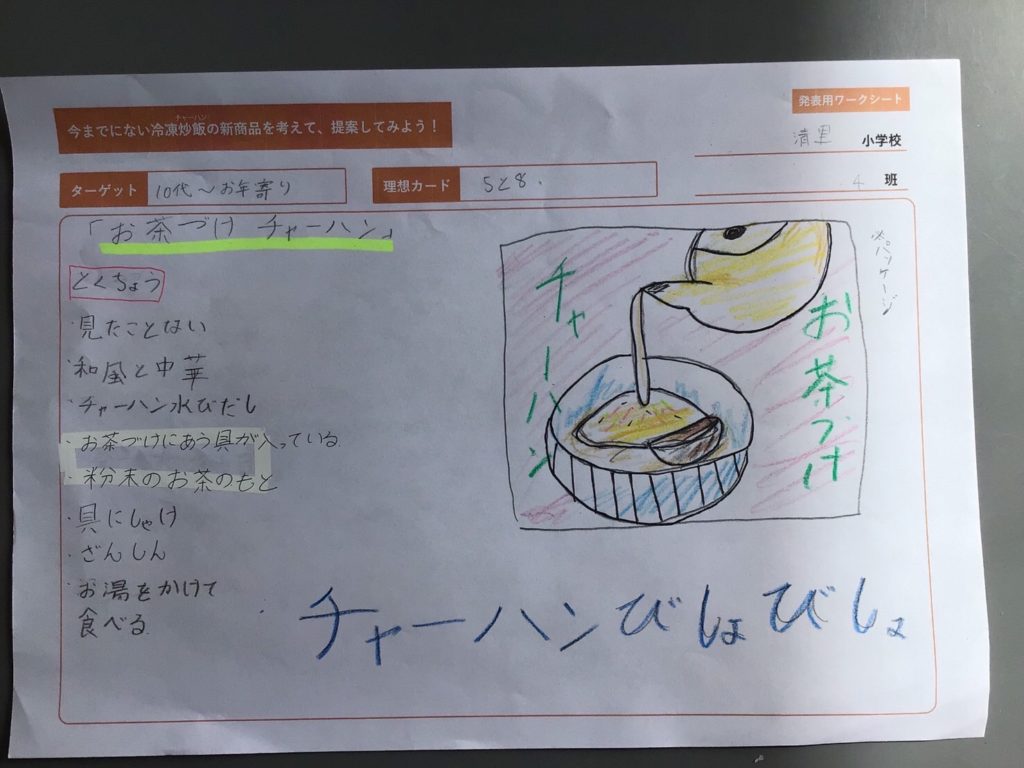 発表用ワークシート
チャーハン
今までにない冷凍炒飯の新商品を考えて、提案してみよう！
清里 小学校
4 班
ターゲット 10代～お年寄り
理想カード 5と8.
「お茶づけ チャーハン」
とくちょう
・見たことない
・和風と中華
・チャーハン水びだし
・お茶づけにあう具が入っている
・粉末のお茶のもと
・具にしゃけ
・ざんしん
・お湯をかけて
食べる
※パッケージ
お茶づけ
チャーハン
チャーハンびしょびしょ